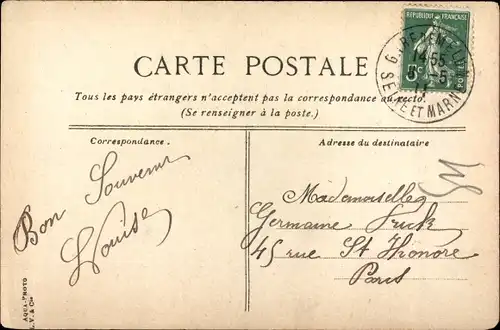 RÉPUBLIQUE FRANÇAISE
5c
POSTES
14 55
-5
SEINE ET MARNE
CARTE POSTALE
Tous les pays étrangers n'acceptent pas la correspondance au recto.
(Se renseigner à la poste.)
Correspondance.
Bon Souvenir
Louise
Adresse du destinataire
Mademoiselle
Germaine
45 rue St Honoré
Paris
AQUA-PHOTO